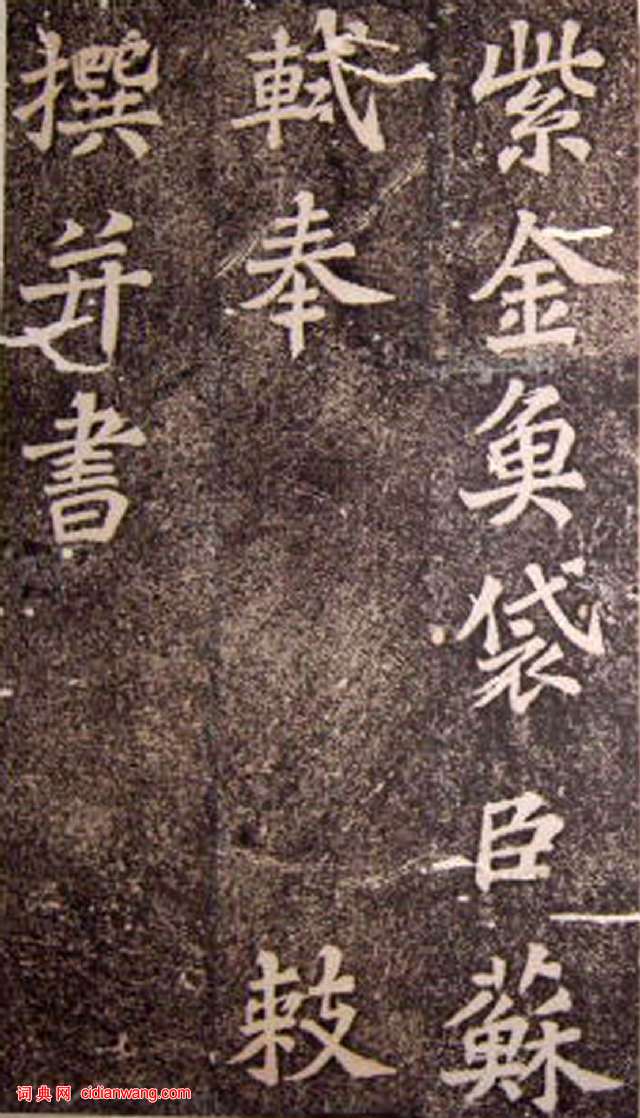 紫金魚袋臣蘇
軾奉敕
撰并書
词典网 cidianwang.com